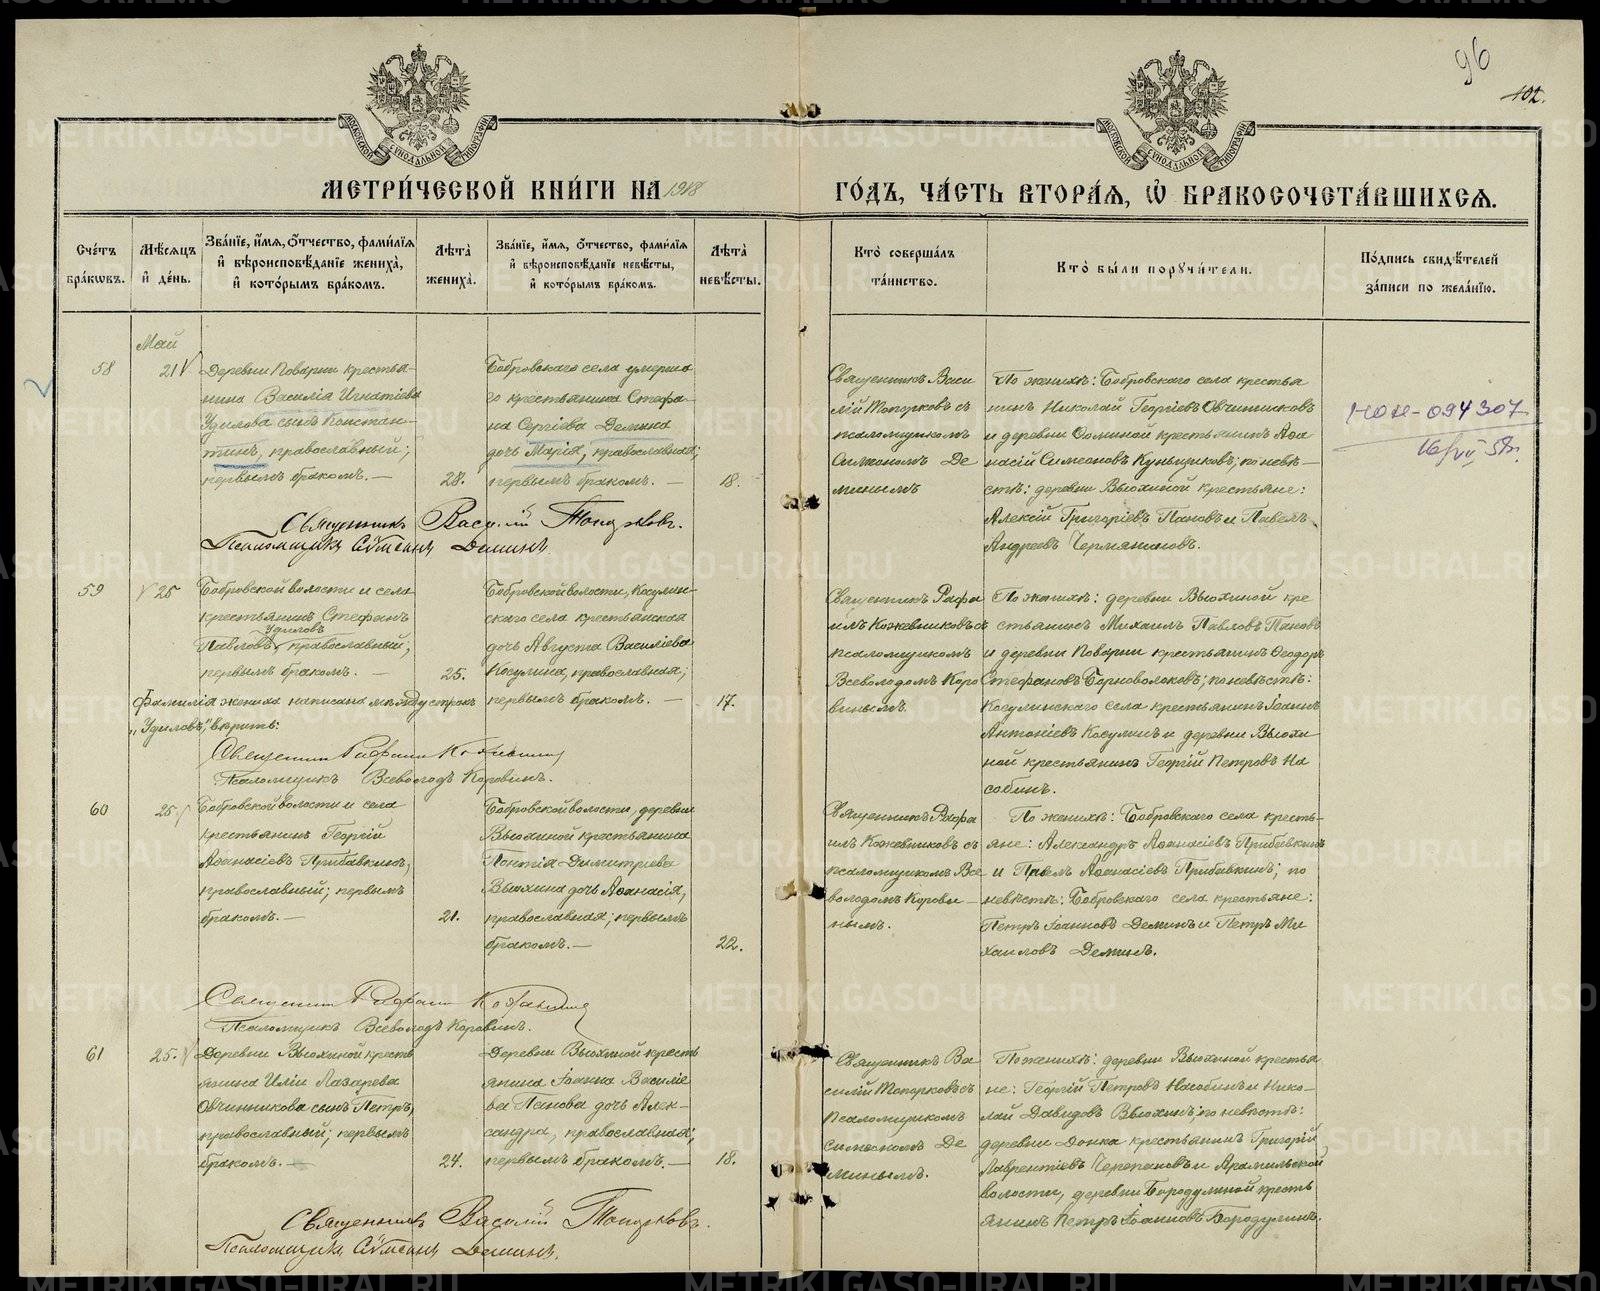 96
102.
МОСКОВСКОЙ СУНОДАЛЬНОЙ ТИПОГРАФІИ
МОСКОВСКОЙ СУНОДАЛЬНОЙ ТИПОГРАФІИ
МЕТРИ́ЧЕСКОЙ КНИ́ГИ НА 1918
ГО́ДЪ, ЧА́СТЬ ВТОРА́Я, Ѽ БРАКОСОЧЕТА́ВШИХСЯ.
Сче́тъ бра́ковъ.
Мѣ́сяцъ и́ де́нь.
Зва́нїе, и́мя, о́тчество, фами́лїя и́ вѣроисповѣ́данїе жениха̀, и́ кото́рымъ бра́комъ.
Лѣ́та жениха̀.
Зва́нїе, и́мя, о́тчество, фами́лїя и́ вѣроисповѣ́данїе невѣ́сты, и́ кото́рымъ бра́комъ.
Лѣ́та невѣ́сты.
Кто̀ соверша́лъ та́инство.
Кто̀ бы́ли поручи́тели.
По́дпись свидѣ́телей за́писи по жела́нїю.
Май
58
21
Деревни Поварни кресть-
янина Василія Игнатіева
Удилова сынъ Констан-
тинъ, православный;
первымъ бракомъ. —
28.
Бобровскаго села умерша-
го крестьянина Стефа-
на Сергіева Демина
дочь Марія, православная;
первымъ бракомъ. —
18.
Священникъ Васи
лій Топорковъ съ
псаломщикомъ
Симеономъ Де
минымъ
По женихѣ: Бобровскаго села крестья
нинъ Николай Георгіевъ Овчинниковъ
и деревни Ѳоминой крестьянинъ Аѳа
насій Симеоновъ Куньщиковъ; по невѣ-
стѣ: деревни Вьюхиной крестьяне:
Алексій Григоріевъ Пановъ и Павелъ
Андреевъ Чермяниновъ.
094307
Священникъ Василій Топорковъ.
Псаломщикъ Сѵмеонъ Деминъ.
59
25
Бобровской волости и села
крестьянинъ Стефанъ
Удиловъ
Павловъ, православный;
первымъ бракомъ. —
25.
Бобровской волости, Косулин-
скаго села крестьянская
дочь Августа Василіева
Косулина, православная;
первымъ бракомъ. —
17.
Священникъ Рафа
илъ Кожевниковъ съ
псаломщикомъ
Всеволодомъ Коро
винымъ.
По женихѣ: деревни Вьюхиной кре
стьянинъ Михаилъ Павловъ Пановъ
и деревни Поварни крестьянинъ Ѳеодоръ
Стефановъ Черноволоковъ; по невѣстѣ:
Косулинскаго села крестьянинъ Іоаннъ
Антоніевъ Косулинъ и деревни Вьюхи
ной крестьянинъ Георгій Петровъ На
собинъ.
Фамилія жениха написана между строкъ
„Удиловъ", вѣрить:
Священникъ Рафаилъ Кожевниковъ
Псаломщикъ Всеволодъ Коровинъ.
60
25.
Бобровской волости и села
крестьянинъ Георгій
Аѳанасіевъ Прибавкинъ,
православный; первымъ
бракомъ. —
21.
Бобровской волости, деревни
Вьюхиной крестьянина
Понтія Димитріева
Вьюхина дочь Аѳанасія,
православная; первымъ
бракомъ. —
22.
Священникъ Рафа
илъ Кожевниковъ съ
псаломщикомъ Все
володомъ Корови —
нымъ.
По женихѣ: Бобровскаго села кресть-
яне: Александръ Аѳанасіевъ Прибавкинъ
и Павелъ Аѳанасіевъ Прибавкинъ; по
невѣстѣ: Бобровскаго села крестьяне:
Петръ Іоанновъ Деминъ и Петръ Ми
хаиловъ Деминъ.
Священникъ Рафаилъ Кожевниковъ
Псаломщикъ Всеволодъ Коровинъ.
61
25.
Деревни Вьюхиной кресть
янина Иліи Лазарева
Овчинникова сынъ Петръ,
православный; первымъ
бракомъ. —
24.
Деревни Вьюхиной кресть
янина Іоанна Василіе
ва Панова дочь Алек-
сандра, православная;
первымъ бракомъ. —
18.
Священникъ Ва
силій Топорковъ съ
псаломщикомъ
Симеономъ Де
минымъ.
По женихѣ: деревни Вьюхиной крестья
не: Георгій Петровъ Насобинъ и Нико-
лай Давидовъ Вьюхинъ; по невѣстѣ:
деревни Донка крестьянинъ Григорій
Лаврентіевъ Черепановъ и Арамильской
волости, деревни Бородулиной кресть
янинъ Петръ Іоанновъ Бородулинъ.
Священникъ Василій Топорковъ.
Псаломщикъ Сѵмеонъ Деминъ.
METRIKI.GASO-URAL.RU